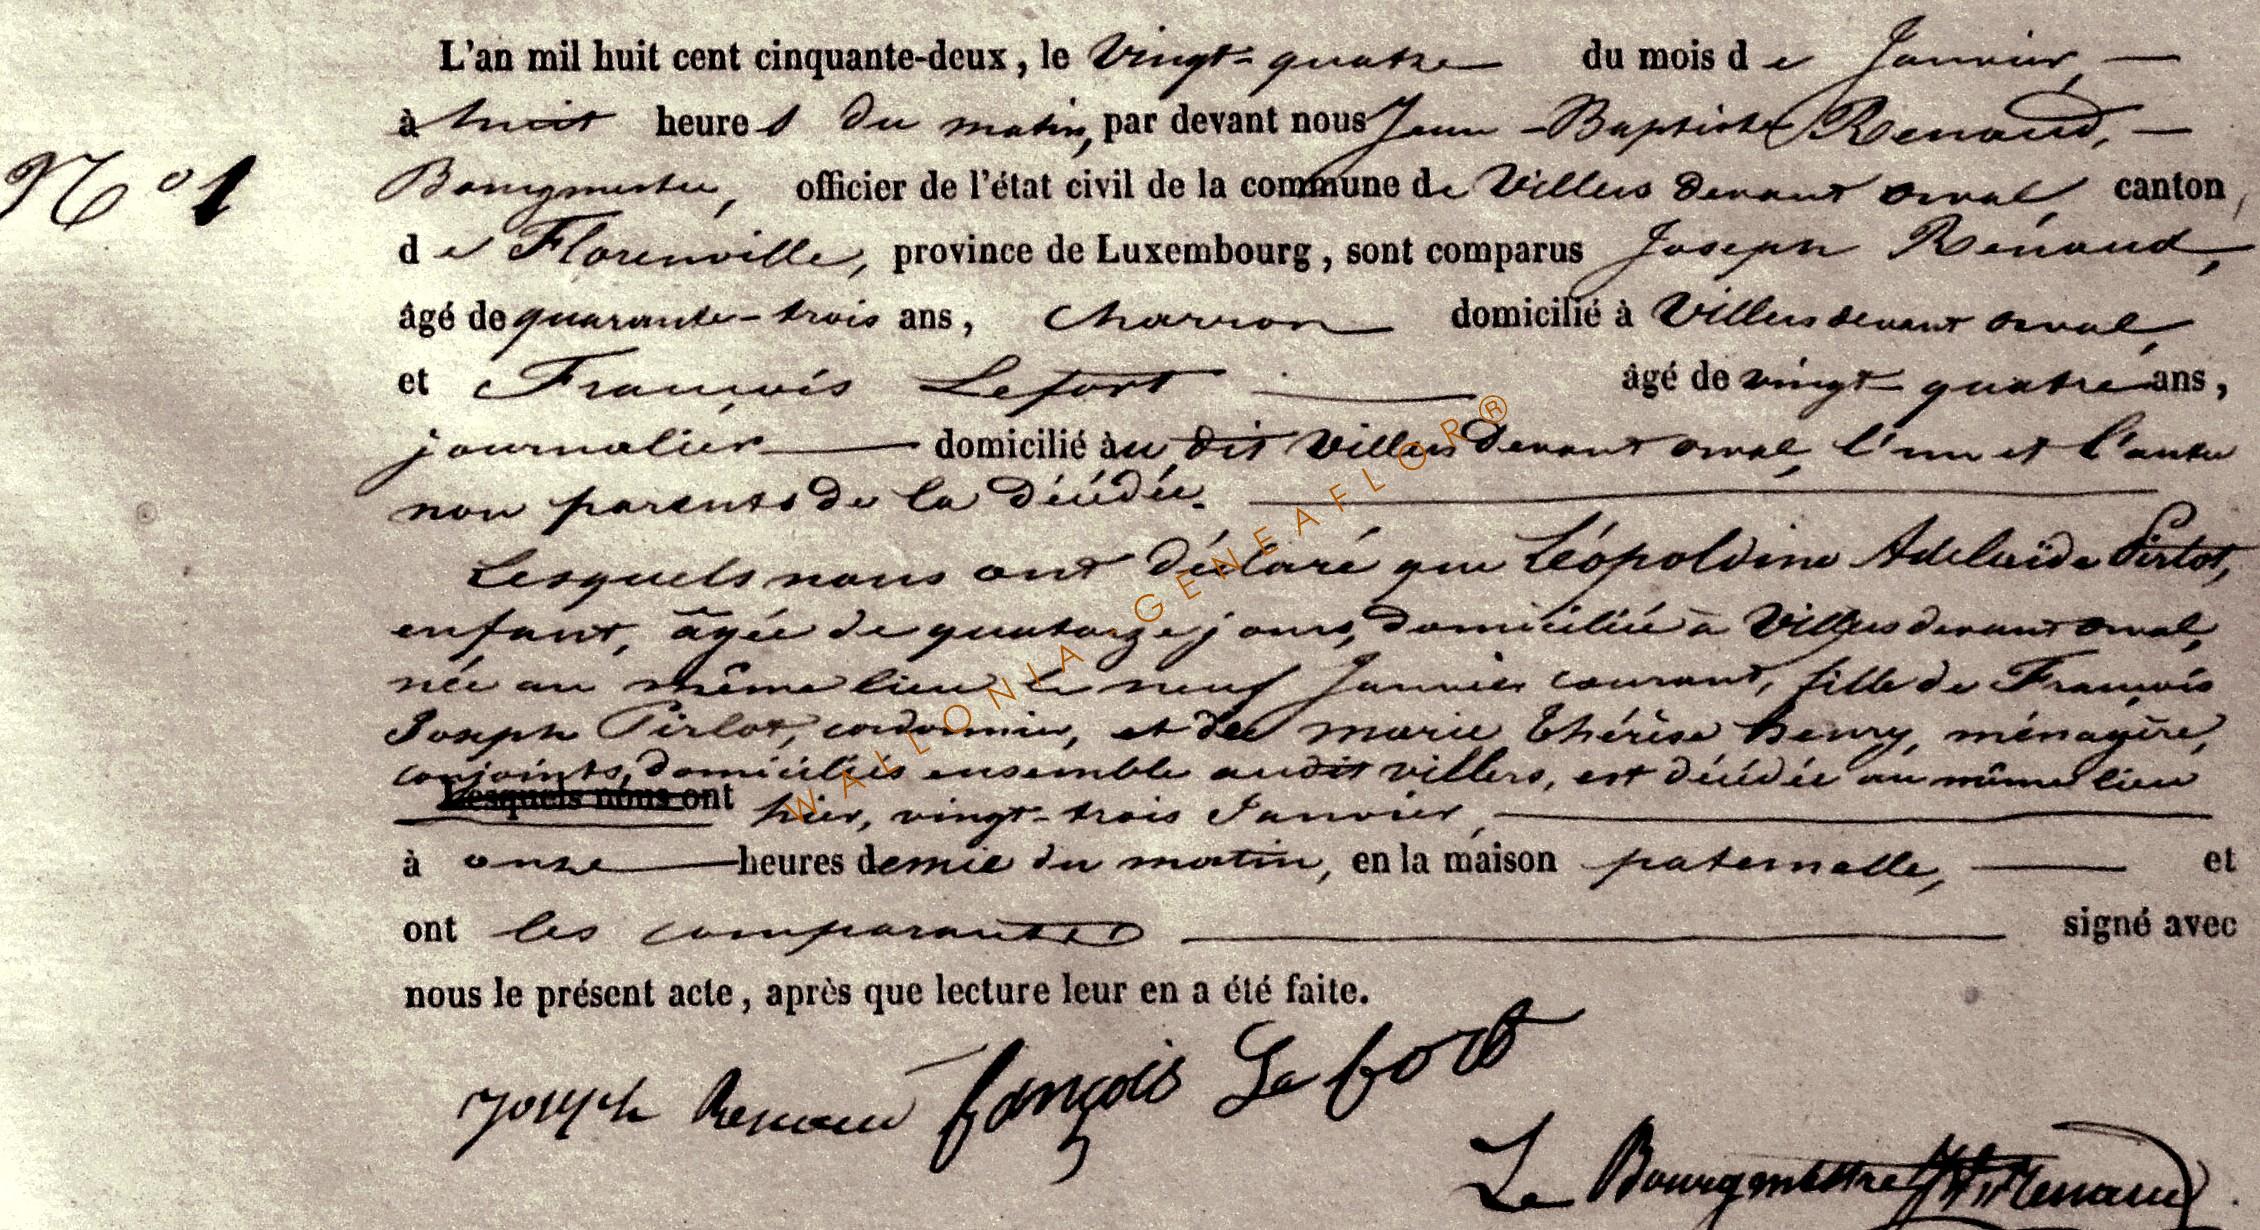 L'an mil huit cent cinquante-deux, le vingt-quatre du mois de Janvier,
à huit heures du matin, par devant nous Jean-Baptiste Renaud,
N° 1
Bourgmestre, officier de l'état civil de la commune de Villers devant orval, canton
de Florenville, province de Luxembourg, sont comparus Joseph Renaud,
âgé de quarante-trois ans, charron domicilié à Villers devant orval,
et François Lefort âgé de vingt-quatre ans,
journalier domicilié àu dit Villers devant orval, l'un et l'autre
non parents de la décédée.
Lesquels nous ont déclaré que Léopoldine Adelaïde Pirlot,
enfant, âgée de quatorze jours, domiciliée à Villers devant orval,
née au même lieu le neuf Janvier courant, fille de François
Joseph Pirlot, cordonnier, et de marie thérèse henry, ménagère,
conjoints, domiciliés ensemble audit villers, est décédée au même lieu
Lesquels nous ont hier, vingt-trois Janvier,
à onze heures demie du matin, en la maison paternelle, et
ont les comparants signé avec
nous le présent acte, après que lecture leur en a été faite.
Joseph Renaud françois Le fort
Le Bourgmestre Renaud
WALLONIA GENEAFLOR®